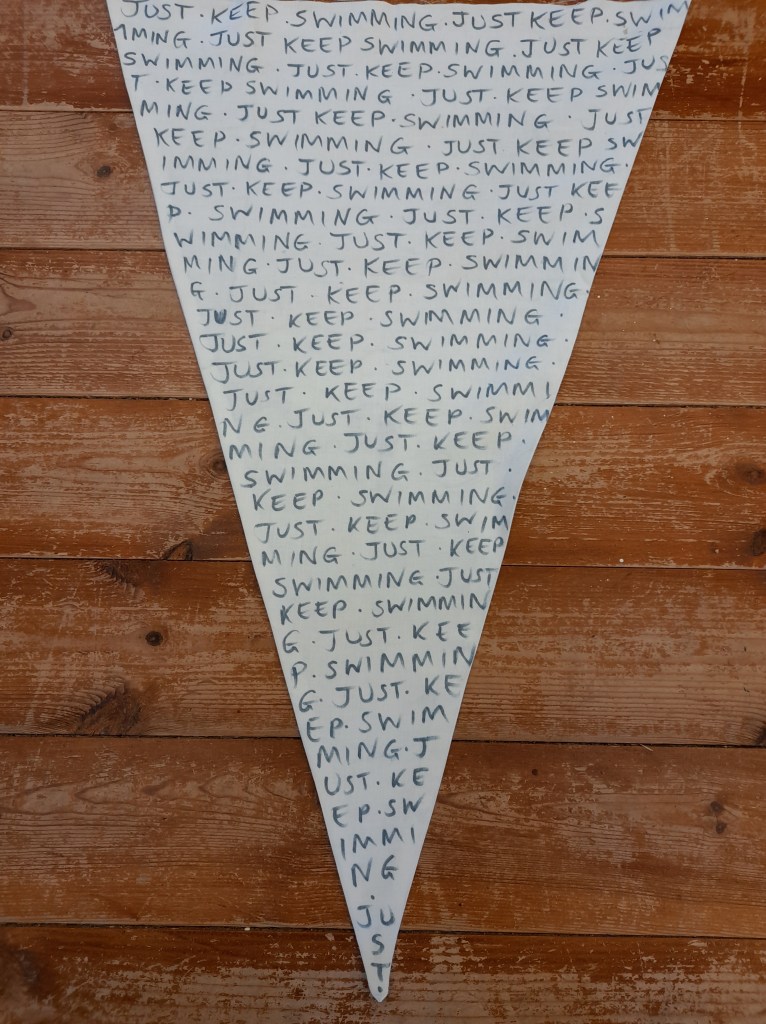 JUST. KEEP. SWIMMING. JUST KEEP. SWIM
MING. JUST KEEP SWIMMING. JUST KEEP
SWIMMING. JUST. KEEP. SWIMMING. JUS
T. KEEP SWIMMING. JUST. KEEP SWIM
MING. JUST KEEP. SWIMMING. JUST
KEEP. SWIMMING. JUST KEEP SW
IMMING. JUST. KEEP. SWIMMING.
JUST. KEEP. SWIMMING. JUST KEE
P. SWIMMING. JUST. KEEP. S
WIMMING. JUST. KEEP. SWIM
MING. JUST. KEEP. SWIMMIN
G. JUST. KEEP. SWIMMING.
JUST. KEEP. SWIMMING.
JUST. KEEP. SWIMMING.
JUST. KEEP. SWIMMING
JUST. KEEP. SWIMMI
NG. JUST. KEEP. SWIM
MING. JUST. KEEP.
SWIMMING. JUST.
KEEP. SWIMMING.
JUST. KEEP. SWIM
MING. JUST. KEEP
SWIMMING. JUST
KEEP. SWIMMIN
G. JUST. KEE
P. SWIMMIN
G. JUST. KE
EP. SWIM
MING. J
UST. KE
EP. SW
IMMI
NG
.
JU
S
T.